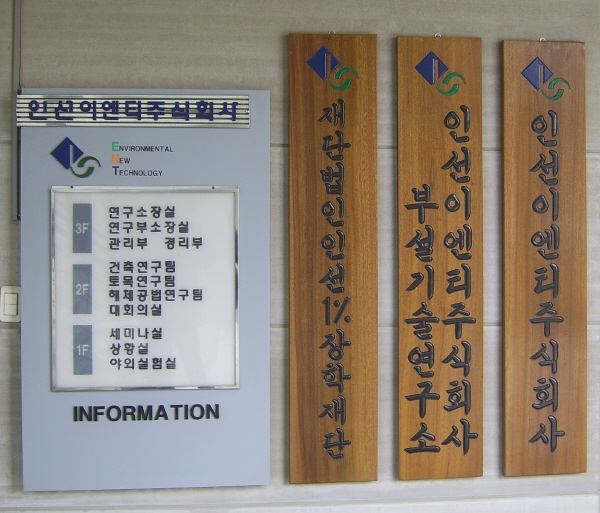 인선이엔티주식회사
ENVIRONMENTAL
NEW
TECHNOLOGY
3F
연구소장실
연구부소장실
관리부 경리부
2F
건축연구팀
토목연구팀
해체공법연구팀
대회의실
1F
세미나실
상황실
야외실험실
INFORMATION
재단법인인선1%장학재단
인선이엔티주식회사
부설기술연구소
인선이엔티주식회사